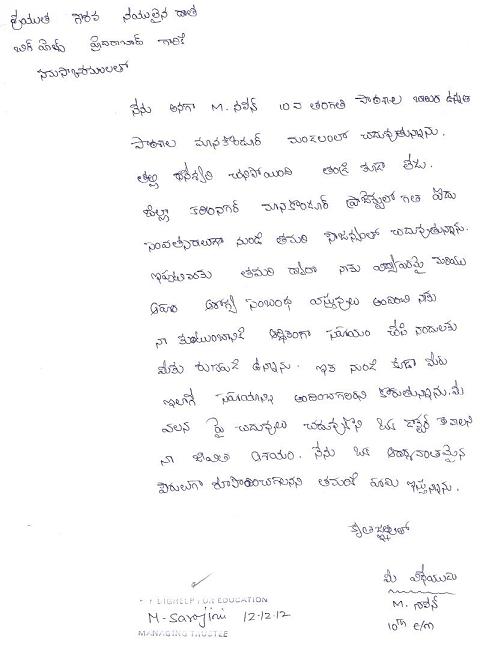 శ్రీయుత గౌరవ నీయులైన దాత
బిగ్ హెల్ప్ హైదరాబాద్ గారికి
నమస్కారములతో
నేను అనగా M. నవీన్ 10వ తరగతి పాఠశాల బాలుర ఉన్నత
పాఠశాల మానకొండూర్ మండలంలో చదువుతున్నాను.
తల్లి చనిపోయింది తండ్రి కూడా లేడు.
జిల్లా కరీంనగర్ మానకొండూర్ ప్రాజెక్టులో గత
సంవత్సరాలుగా నుండి తమరి చదువుతున్నాను.
ఇప్పటివరకు తమరి ద్వారా నాకు మరియు
ఆరోగ్య సంబంధ వస్తువులు అందించి నాకు
నా కుటుంబానికి ఆర్థికంగా సహాయం చేసి నందులకు
మీకు ఉన్నాను. ఇక నుండి కూడా మీరు
ఇలాగే సహాయాన్ని అందించగలరని కోరుతున్నాను. మీ
వలన పై చదువులు చదువుకొని ఒక డాక్టర్ కావాలని
నా జీవిత ఆశయం. నేను ఒక ఆదర్శవంతమైన
పౌరులుగా తమరికి హామి ఇస్తున్నాను.
కృతజ్ఞతలతో
మీ విధేయుడు
M. నవీన్
10th c/m
BIGHELP FOR EDUCATION
M. Sarojini 12-12-12
MANAGING TRUSTEE